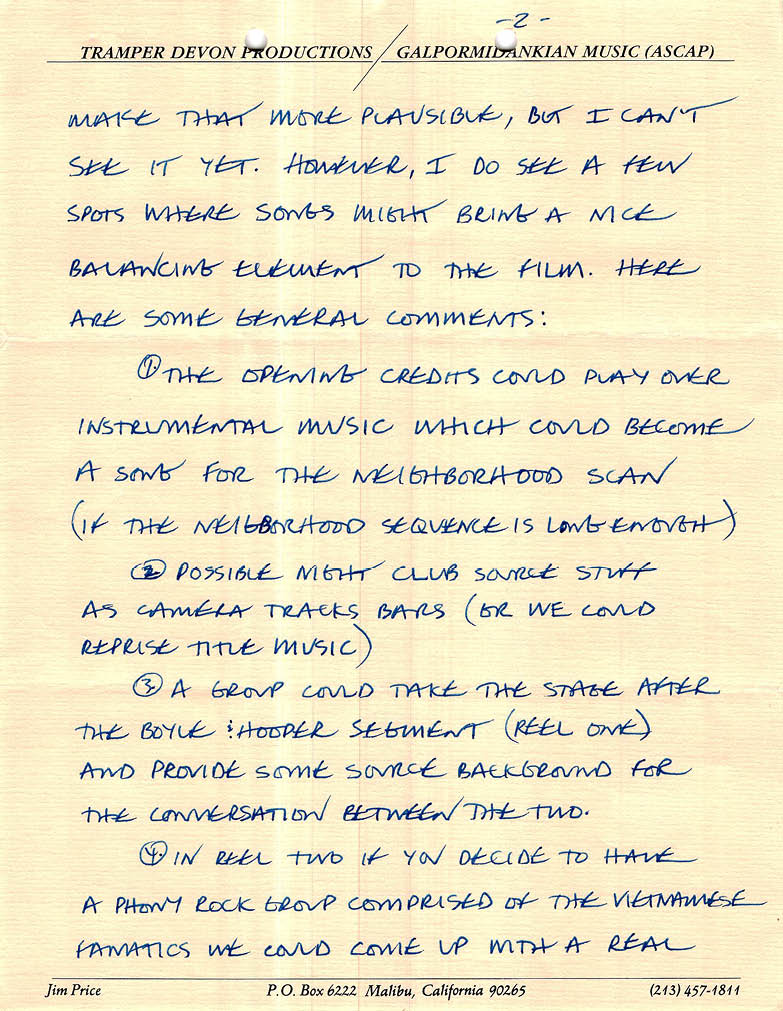 -2-
TRAMPER DEVON PRODUCTIONS / GALPORMIDANKIAN MUSIC (ASCAP)
MAKE THAT MORE PLAUSIBLE, BUT I CAN'T
SEE IT YET. HOWEVER, I DO SEE A FEW
SPOTS WHERE SONGS MIGHT BRING A NICE
BALANCING ELEMENT TO THE FILM. HERE
ARE SOME GENERAL COMMENTS:
1. THE OPENING CREDITS COULD PLAY OVER
INSTRUMENTAL MUSIC WHICH COULD BECOME
A SONG FOR THE NEIGHBORHOOD SCAN
(IF THE NEIGBORHOOD SEQUENCE IS LONG ENOUGH)
2. POSSIBLE NIGHT CLUB SOURCE STUFF
AS CAMERA TRACKS BARS (OR WE COULD
REPRISE TITLE MUSIC)
3. A GROUP COULD TAKE THE STAGE AFTER
THE BOYLE & HOOPER SEGMENT (REEL ONE)
AND PROVIDE SOME SOURCE BACKGROUND FOR
THE CONVERSATION BETWEEN THE TWO.
4. IN REEL TWO IF YOU DECIDE TO HAVE
A PHONY ROCK GROUP COMPRISED OF THE VIETNAMESE
FANATICS WE COULD COME UP WITH A REAL
Jim Price P.O. Box 6222 Malibu, California 90265 (213) 457-1811